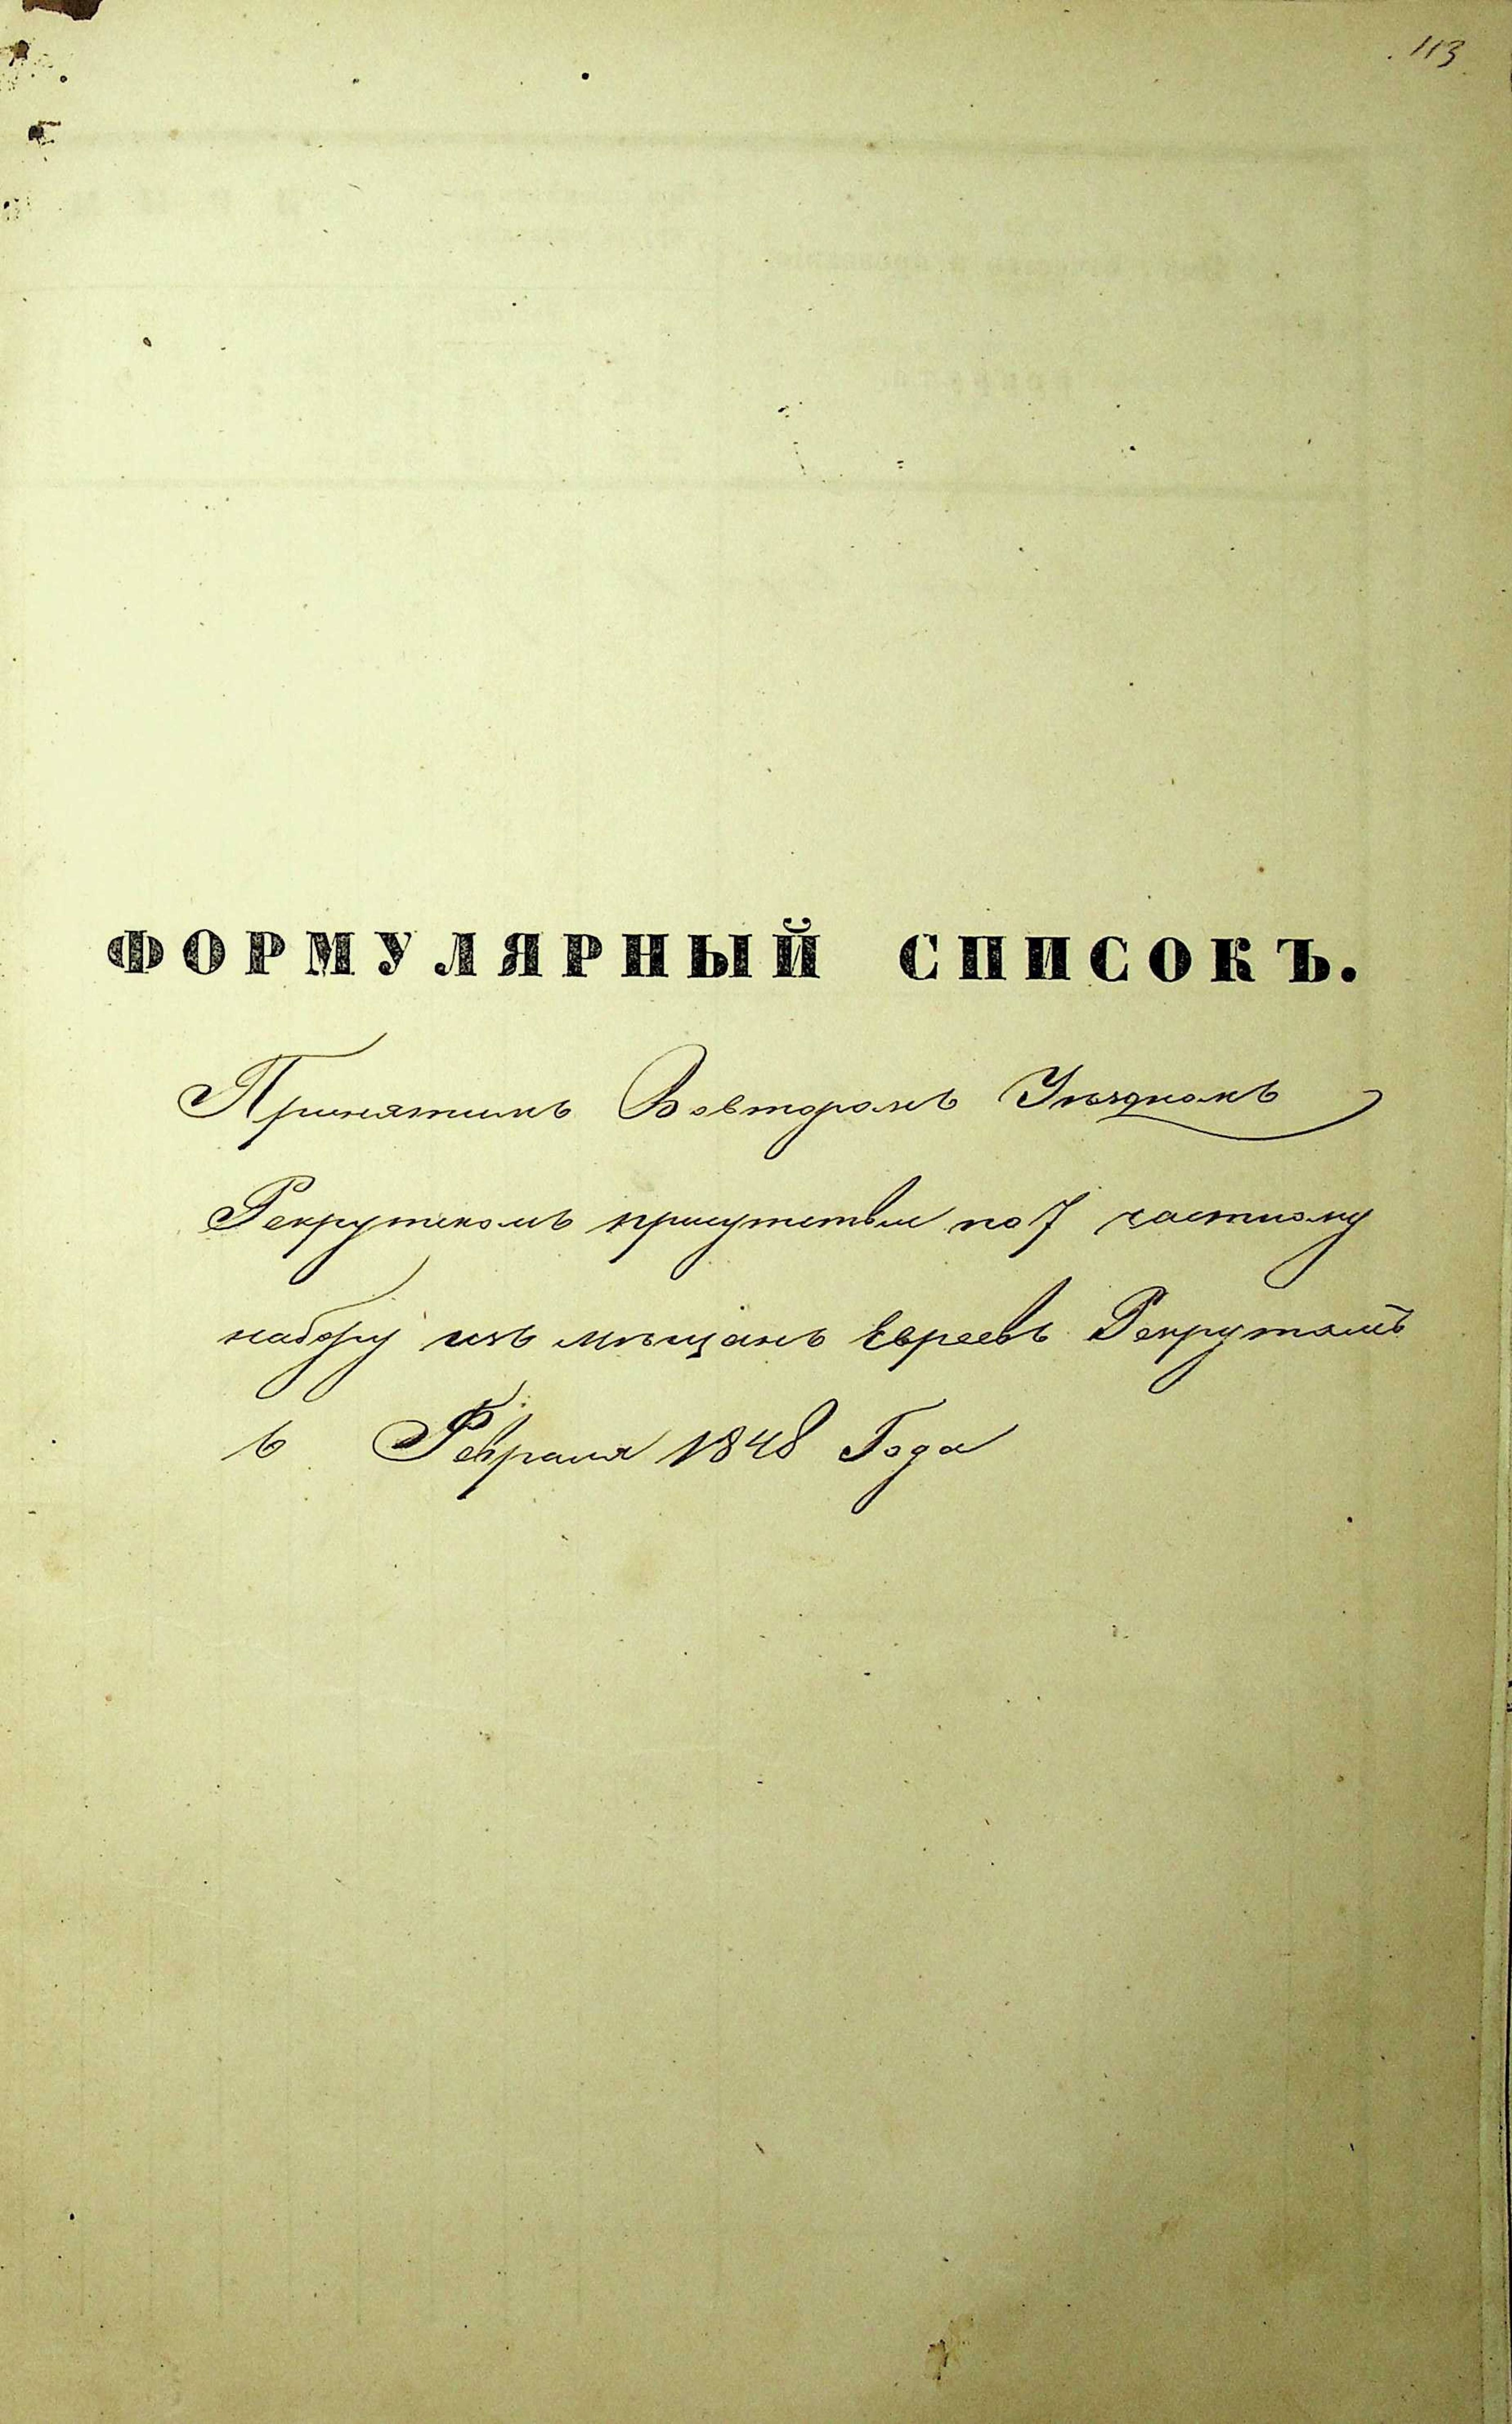 113
ФОРМУЛЯРНЫЙ СПИСОКЪ.
Принятымъ Вовторомъ Уѣздномъ
Рекрутскомъ присутствіи по 7 частному
набору изъ мѣщанъ Евреевъ Рекрутамъ
6 Февраля 1848 Года